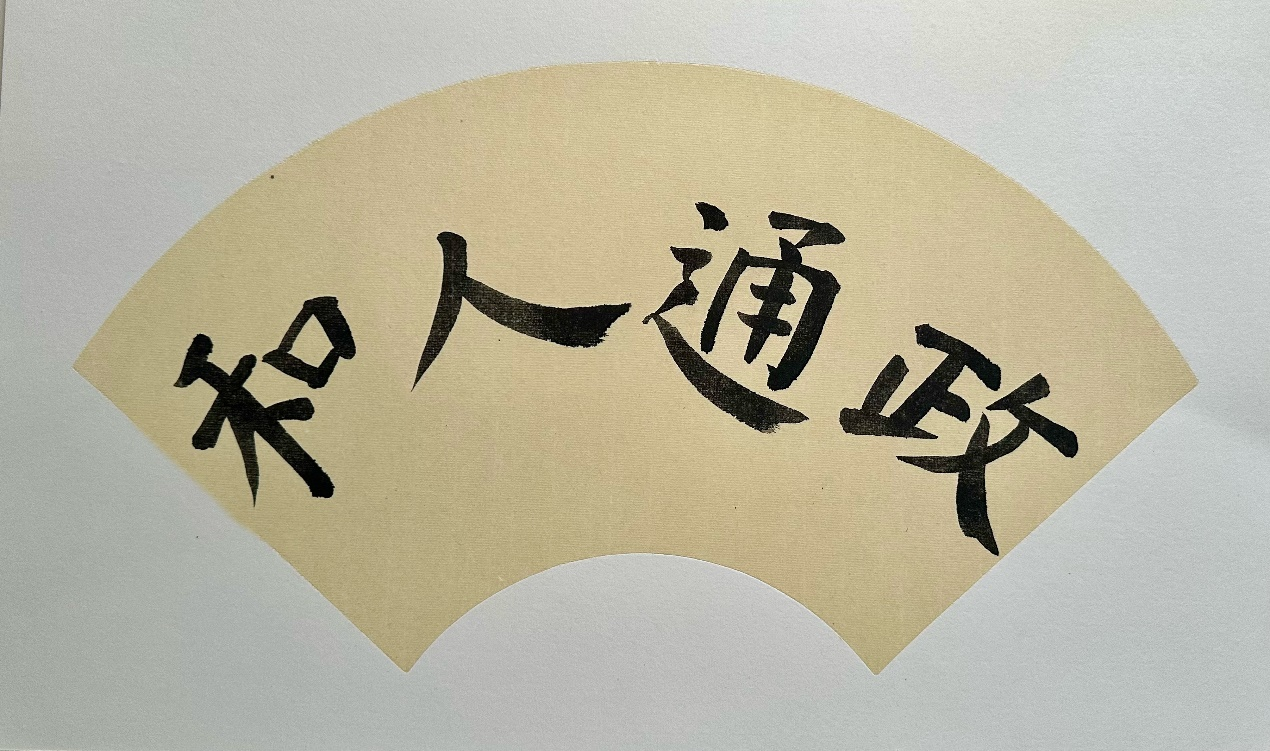 政通人和